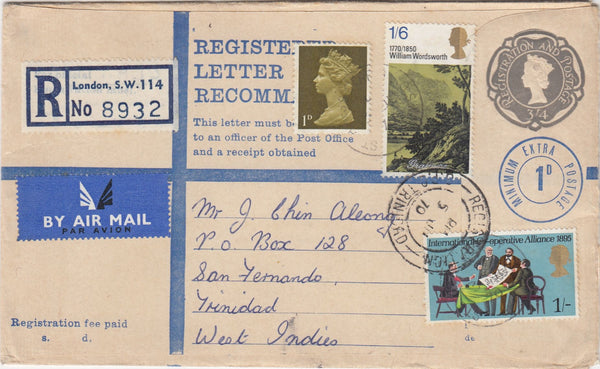 REGISTERED
LETTER
RECOMM
This letter must be
to an officer of the Post Office
and a receipt obtained
R
London, S.W.114
No 8932
1D
1/6
1770/1850
William Wordsworth
Grasmere
REGISTRATION AND POSTAGE
3/4
MINIMUM EXTRA POSTAGE
1D
BY AIR MAIL
PAR AVION
Mr J. Chin Aleong
P.O. Box 128
San Fernando,
Trinidad
West Indies
International Co-operative Alliance 1895
1/-
Registration fee paid
s. d.
de